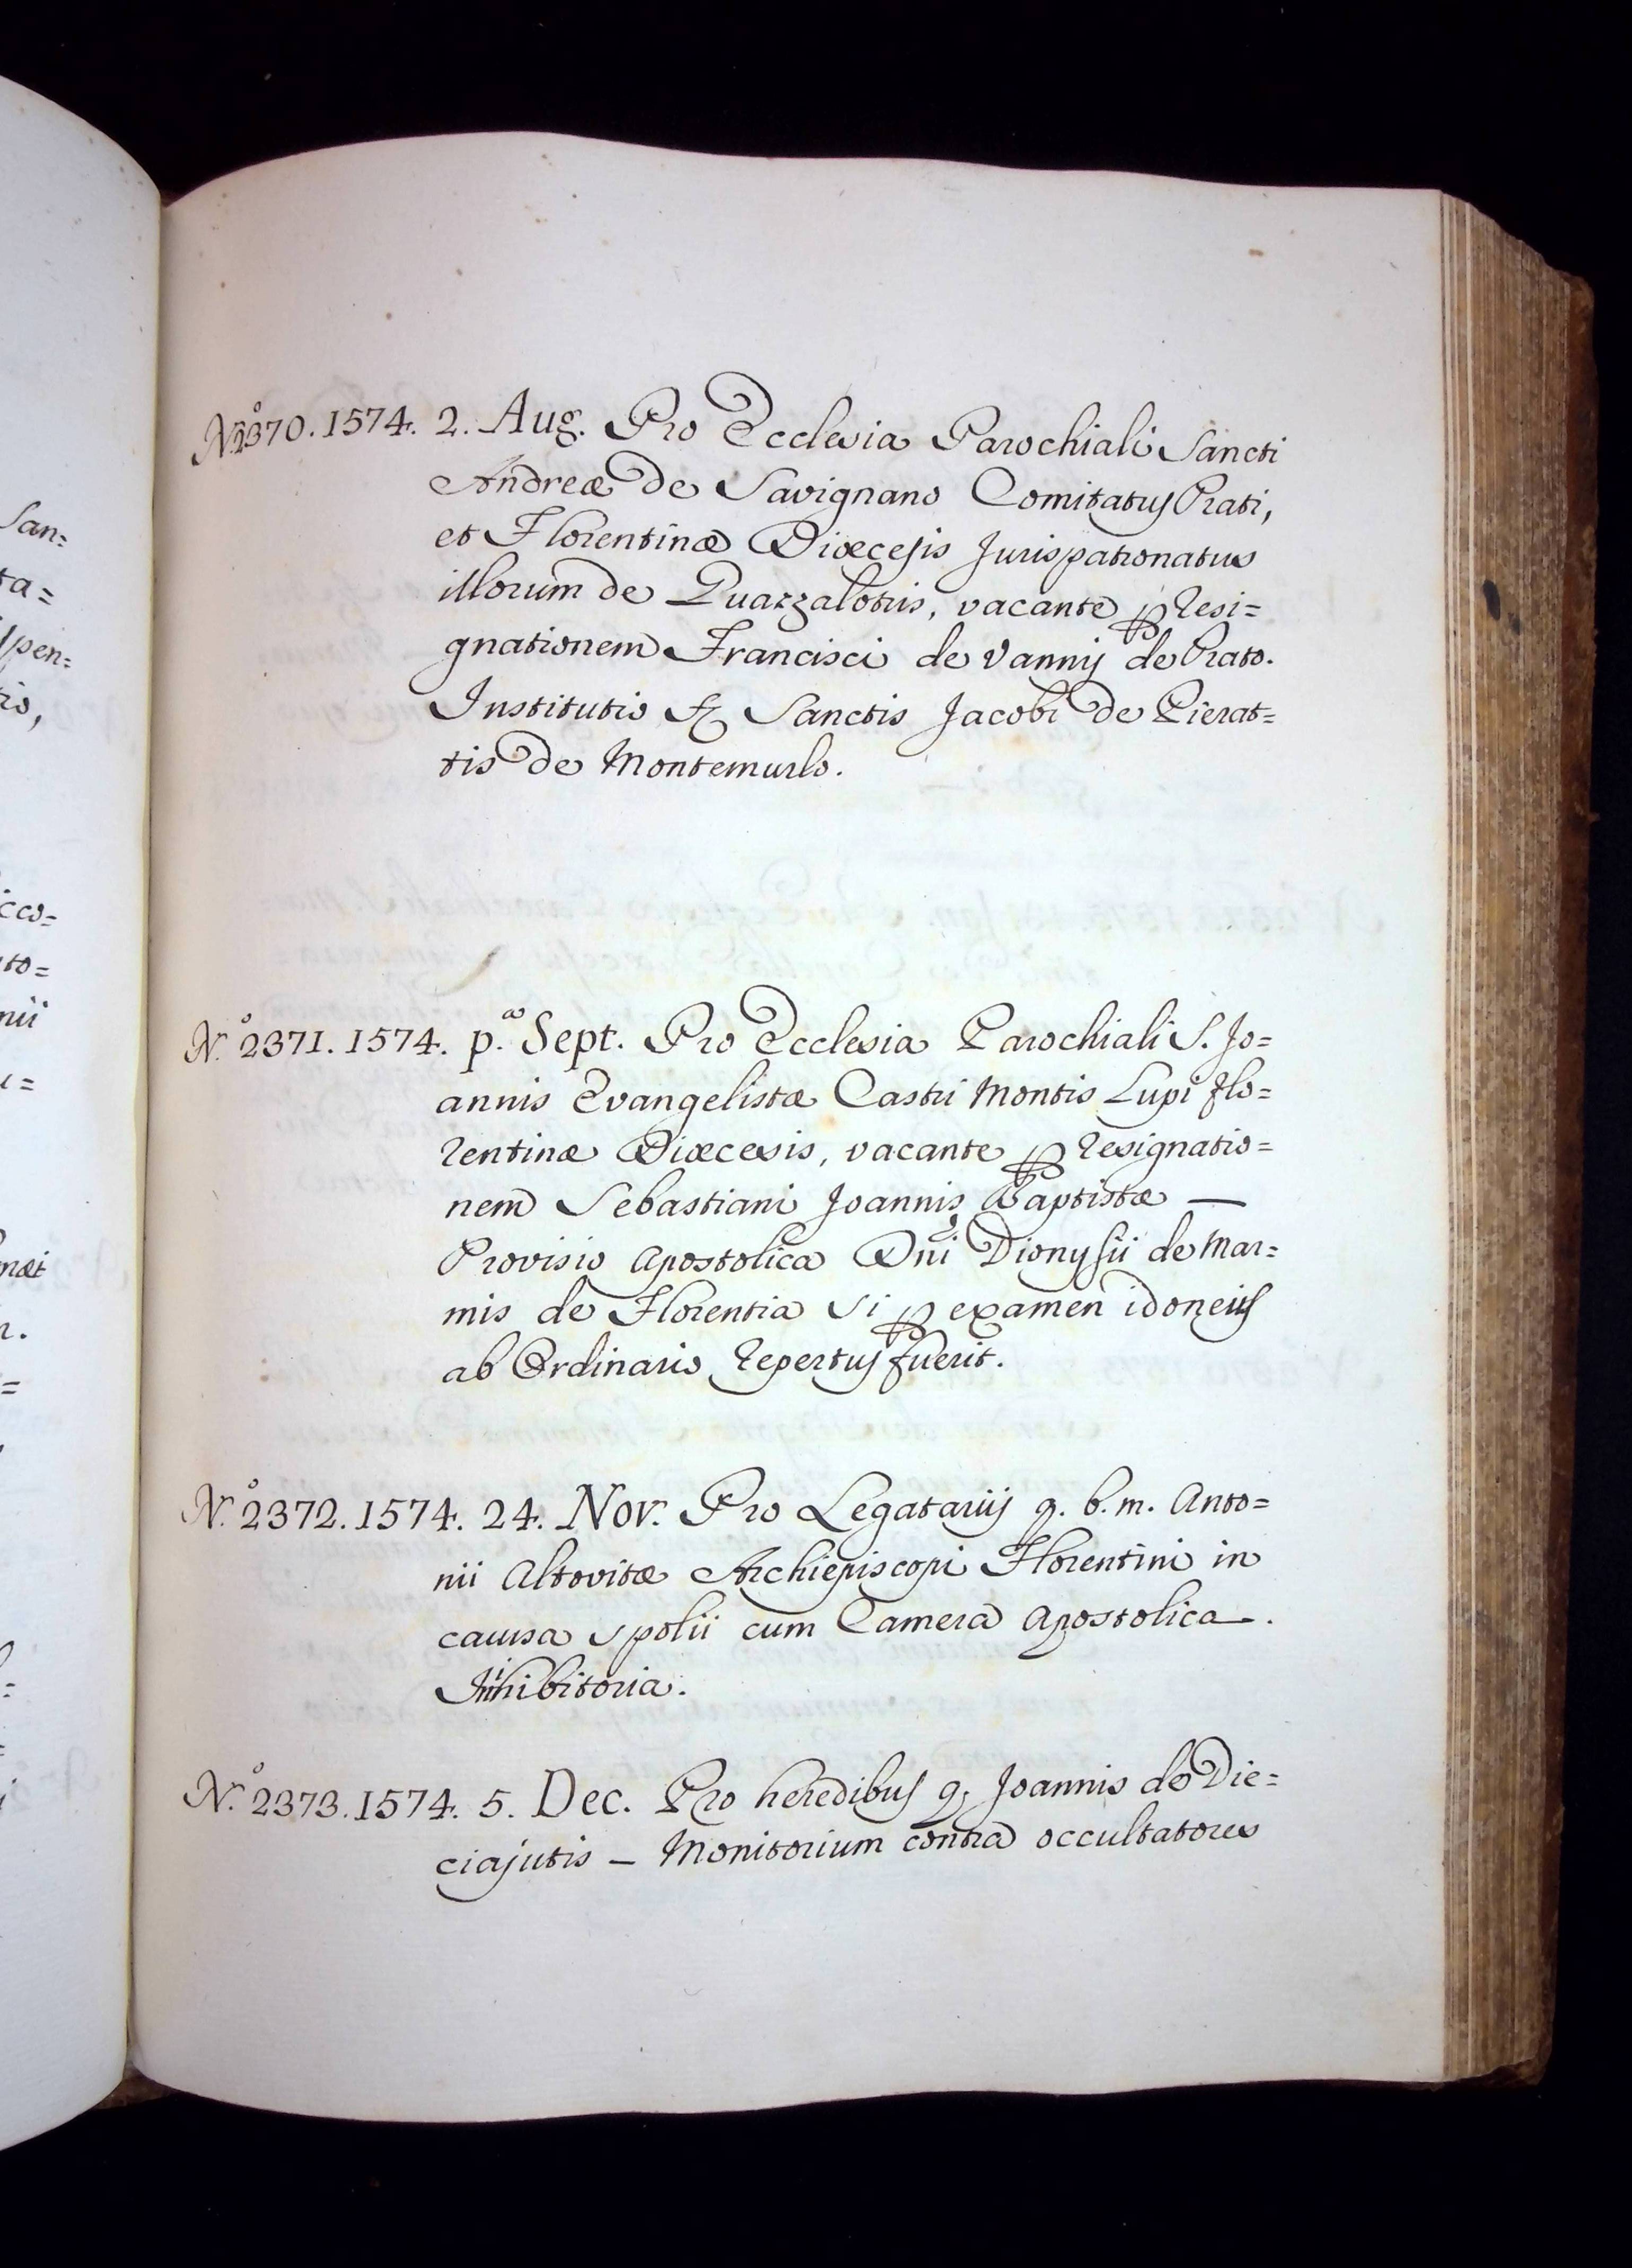 San=
ta=
spen=
tio,
cco=
nto=
nii
=
N.º 2370. 1574. 2. Aug. Pro Ecclesia Parochiali Sancti
Andreæ de Savignano Comitatus Prati,
et Florentinæ Diœcesis Jurispatronatus
illorum de Guazzalotris, vacante p Resi=
gnationem Francisci de Vannij de Prato.
Institutio Sanctis Jacobi de Pierat=
tis de Montemurlo.
N.º 2371. 1574. p.ª Sept. Pro Ecclesia Parochiali S. Jo=
annis Evangelistæ Castri Montis Lupi Flo=
rentinæ Diœcesis, vacante p resignatio=
nem Sebastiani Joannis Baptistæ —
Provisio Apostolica Dni Dionysii de Mar=
mis de Florentia si p examen idoneus
ab Ordinario repertus fuerit.
N.º 2372. 1574. 24. Nov. Pro Legatariis q. b. m. Anto=
nii Altovitæ Archiepiscopi Florentini in
causa spolii cum Camera Apostolica.
Inhibitoria.
N.º 2373. 1574. 5. Dec. Pro heredibus q; Joannis de Die=
ciajutis – Monitorium contra occultatores